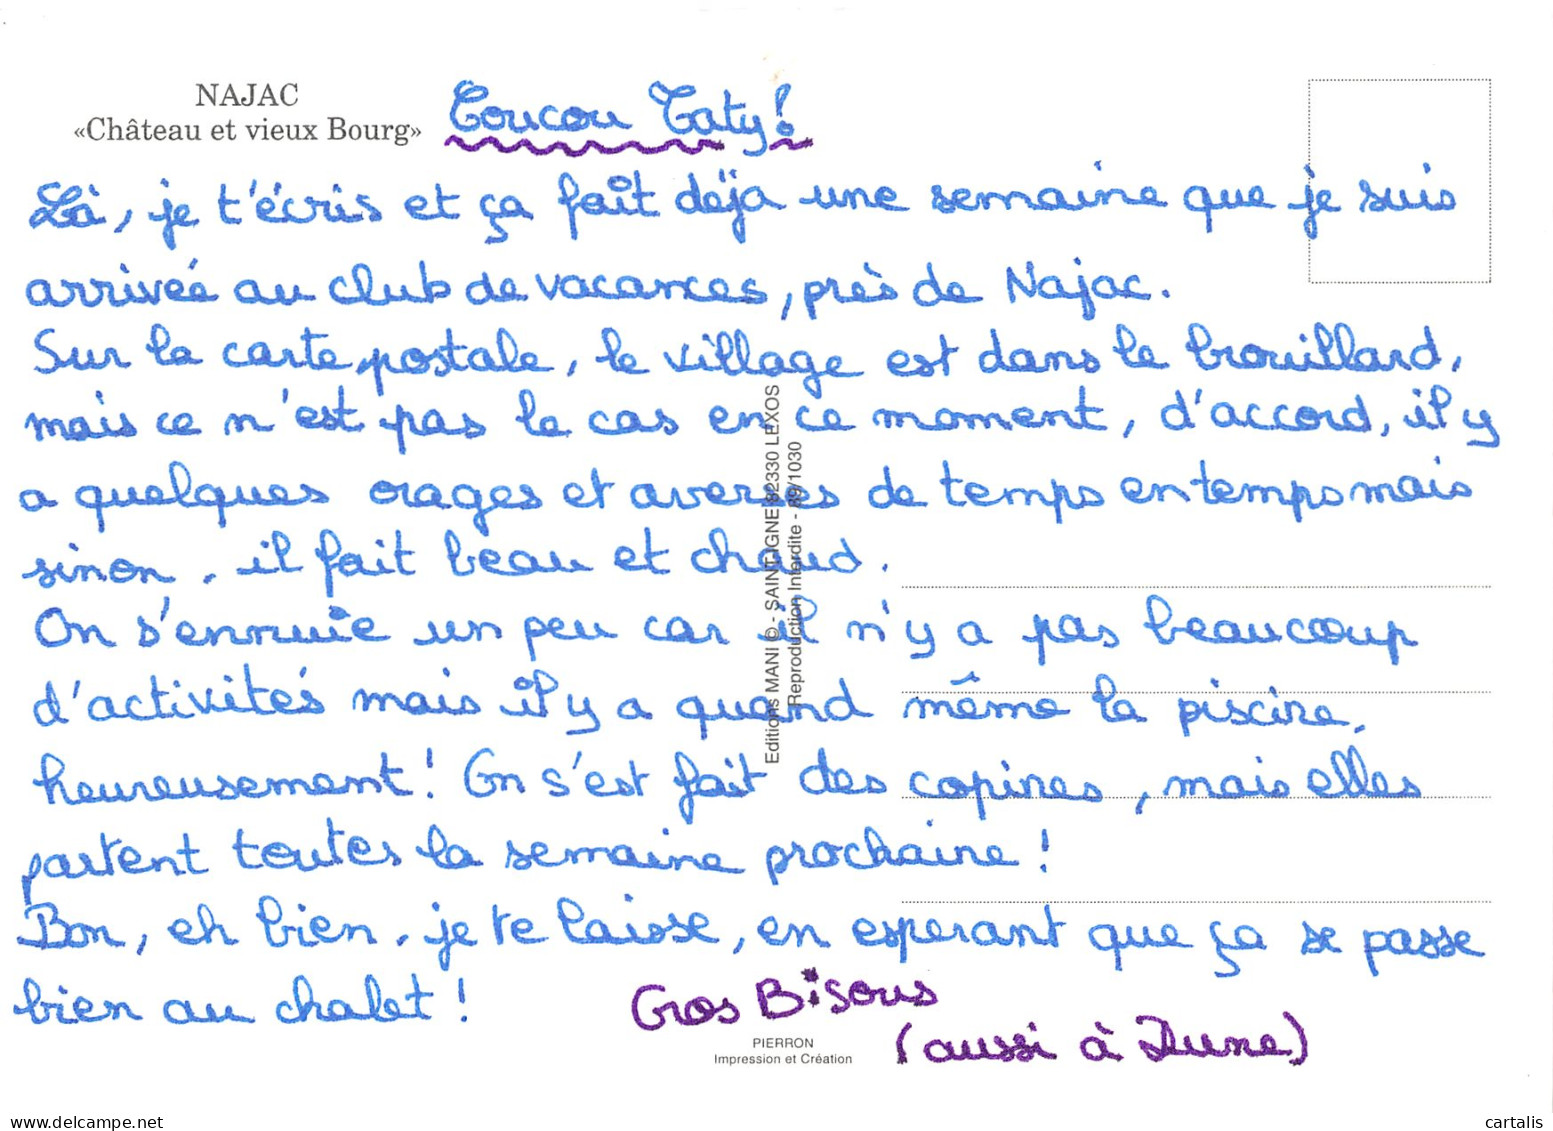 NAJAC
«Château et vieux Bourg»
Coucou Taty!
Là, je t'écris et ça fait déjà une semaine que je suis
arrivée au club de vacances, près de Najac.
Sur la carte postale, le village est dans le brouillard,
mais ce n'est pas le cas en ce moment, d'accord, il y
a quelques orages et averses de temps en temps mais
sinon, il fait beau et chaud.
On s'ennuie un peu car il n'y a pas beaucoup
d'activités mais il y a quand même la piscine,
heureusement! On s'est fait des copines, mais elles
partent toutes la semaine prochaine!
Bon, eh bien, je te laisse, en esperant que ça se passe
bien au chalet!
Gros Bisous
(aussi à Dune)
Editions MANI © - SAINT IGNE 82330 LEXOS
Reproduction Interdite - 89/1030
PIERRON
Impression et Création
https://www.delcampe.net
cartalis